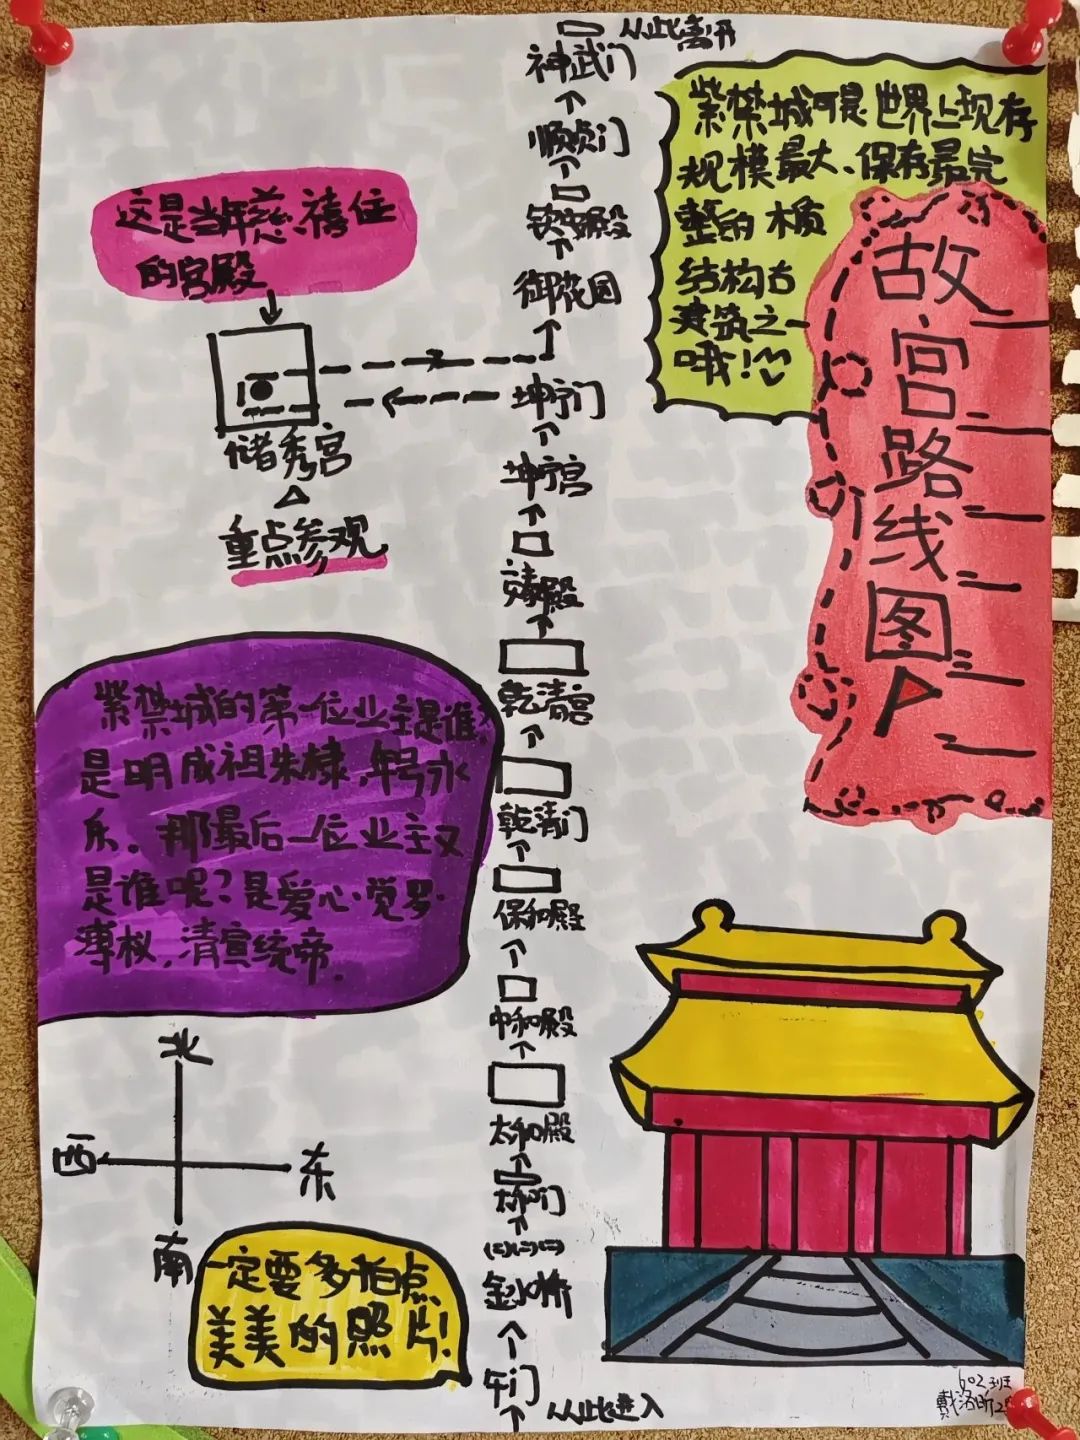 从此离开
神武门
顺贞门
钦安殿
御花园
坤宁门
坤宁宫
殿
乾清宫
乾清门
保和殿
中和殿
太和殿
太和门
金水桥
午门
从此进入
这是当年慈禧住
的宫殿
储秀宫
重点参观
紫禁城可是世界上现存
规模最大、保存最完
整的木质
结构古
建筑之一
哦!
故宫路线图
紫禁城的第一位业主是谁?
是明成祖朱棣,年号永
乐。那最后一位业主又
是谁呢?是爱心·觉罗·
溥仪,清宣统帝.
北
西
东
南
一定要多拍点
美美的照片!
602班
戴洛昕